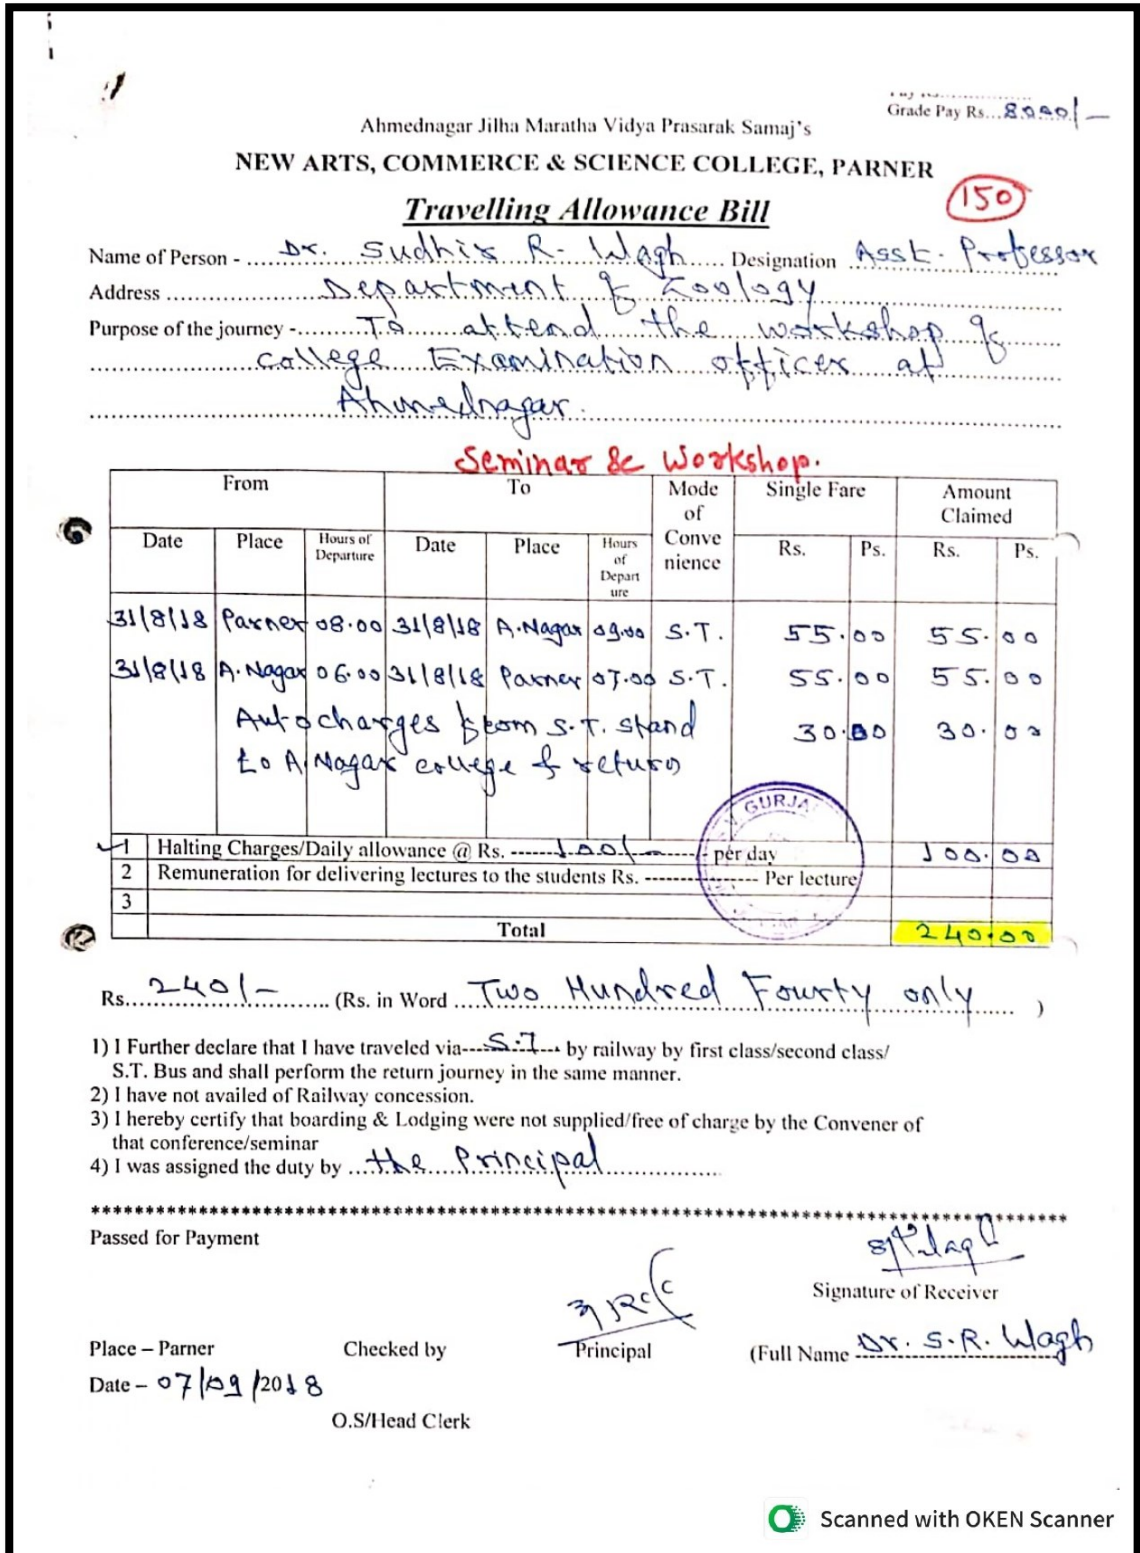 Grade Pay Rs...8000/-
Ahmednagar Jilha Maratha Vidya Prasarak Samaj's
NEW ARTS, COMMERCE & SCIENCE COLLEGE, PARNER
150
Travelling Allowance Bill
Name of Person - Dr. Sudhir R. Wagh Designation Asst. Professor
Address Department of Zoology
Purpose of the journey - To attend the workshop of
college Examination officer at
Ahmednagar.
Seminar & Workshop.
From To Mode of Conve nience Single Fare Amount Claimed
Date Place Hours of Departure Date Place Hours of Depart ure Rs. Ps. Rs. Ps.
31/8/18 Parner 08.00 31/8/18 A.Nagar 09.00 S.T. 55.00 55.00
31/8/18 A.Nagar 06.00 31/8/18 Parner 07.00 S.T. 55.00 55.00
Auto charges from S.T. stand 30.00 30.00
to A Nagar college & return
GURJA
1 Halting Charges/Daily allowance @ Rs. ------100/-------- per day 100.00
2 Remuneration for delivering lectures to the students Rs. ------------- Per lecture
3
Total 240.00
Rs. 240/- (Rs. in Word Two Hundred Fourty only )
1) I Further declare that I have traveled via---S.T--- by railway by first class/second class/
S.T. Bus and shall perform the return journey in the same manner.
2) I have not availed of Railway concession.
3) I hereby certify that boarding & Lodging were not supplied/free of charge by the Convener of
that conference/seminar
4) I was assigned the duty by ...the Principal
Passed for Payment
Signature of Receiver
Place – Parner Checked by Principal (Full Name Dr. S.R. Wagh
Date – 07/09/2018
O.S/Head Clerk
Scanned with OKEN Scanner